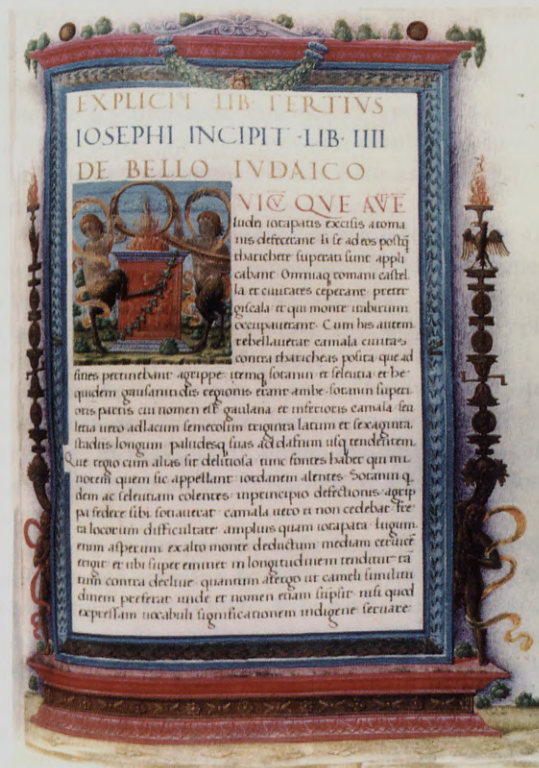 EXPLICIT LIB TERTIVS
IOSEPHI INCIPIT · LIB · IIII
DE BELLO IVDAICO
VICV̄ QVE AVTĒ
Iudei iotapatis excisis a roma
nis defecerant. ii se ad eos postq̄
tharichete superati sunt appli
cabant. Omniaq romani castel
la et ciuitates ceperant preter
giscala et qui monte itabirium
occupauerant. Cum his autem
rebellauerat camala ciuitas
contra tharicheas posita que ad
fines pertinebant agrippe itemq sotanin et seleutia et
quidem gaulanitidis regionis erant ambe sotanin superi
oris partis cui nomen est gaulana et inferioris camala seu
letia uero ad lacum semecolim triginta latum et sexaginta
stadiis longum paludesq suas ad dafnim usq tendentem.
Que regio cum alias sit delitiosa tunc fontes habet qui mi
norem quem sic appellant iordanem alentes. Sotanin q
dem ac seleutiam colentes in principio defectionis agrip
pa federe sibi sotiauerat camala uero ei non cedebat fre
ta locorum difficultate amplius quam iotapata. Iugum
enim asperum ex alto monte deductum mediam
erigit et ubi super eminet in longitudinem tenditur tā
tum contra decliue quantum a tergo ut cameli similitu
dinem preferat unde et nomen etiam supsit nisi quod
expressam uocabuli significationem indigene seruare